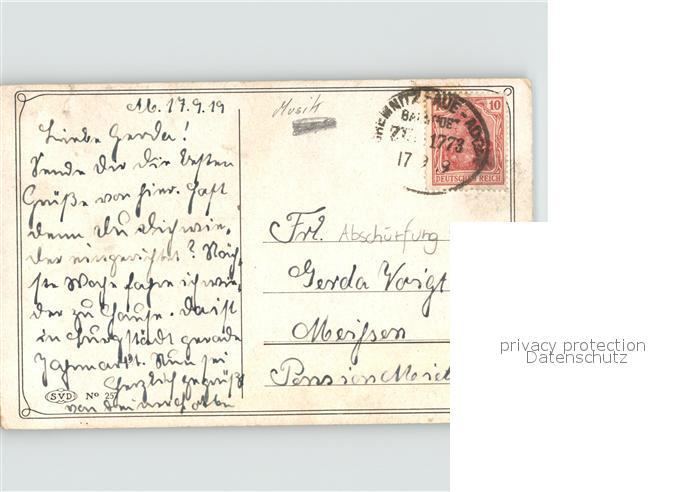 M. 17.9.19
Liebe Gerda!
Sende Dir die besten
Grüße von hier. Hast
denn Du Dich wie-
der eingerichtet? Näch-
ste Woche fahre ich wie-
der zu Hause. Da ist
in Burgstädt gerade
Jahrmarkt. Nun sei
herzlich gegrüßt
von
SVD No 257
Musik
CHEMNITZ-AUE-ADORF
BAHNPOST
1773
17 9 19
10
DEUTSCHES REICH
Frl. Abschürfung
Gerda Voigt
Meissen
Pension
privacy protection
Datenschutz